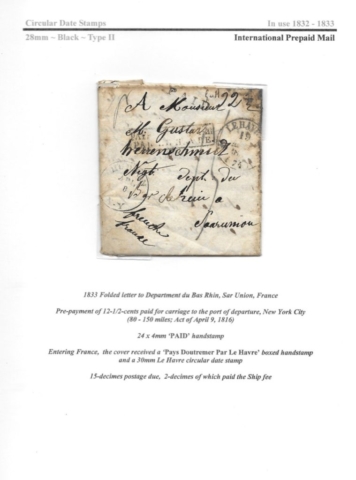 Circular Date Stamps In use 1832 - 1833
28mm ~ Black ~ Type II International Prepaid Mail
A Monsieur 22
M. Gusta
herrenschmidt
dept. du
a
Saarunion
france
LE HAVRE
19
1833 Folded letter to Department du Bas Rhin, Sar Union, France
Pre-payment of 12-1/2-cents paid for carriage to the port of departure, New York City
(80 - 150 miles; Act of April 9, 1816)
24 x 4mm 'PAID' handstamp
Entering France, the cover received a 'Pays Doutremer Par Le Havre' boxed handstamp
and a 30mm Le Havre circular date stamp
15-decimes postage due, 2-decimes of which paid the Ship fee